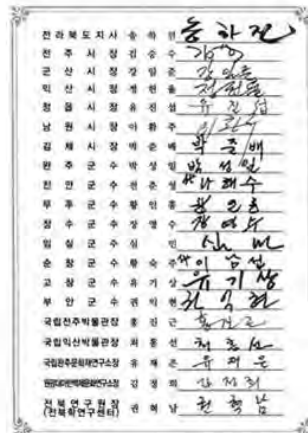 전라북도지사 송하진 송하진
전주시장 김승수
군산시장 강임준 강임준
익산시장 정헌율 정헌율
정읍시장 유진섭 유진섭
남원시장 이환주
김제시장 박준배 박준배
완주군수 박성일 박성일
진안군수 전춘성 나해수
무주군수 황인홍
장수군수 장영수 장영수
임실군수 심민 심민
순창군수 황숙주 이남섭
고창군수 유기상 유기상
부안군수 권익현 권익현
국립전주박물관장 홍진근 홍진근
국립익산박물관장 최흥선 최흥선
국립완주문화재연구소장 유재은 유재은
원광대마한백제문화연구소장 김정희 김정희
전북연구원장 권혁남 권혁남
(전북학연구센터)